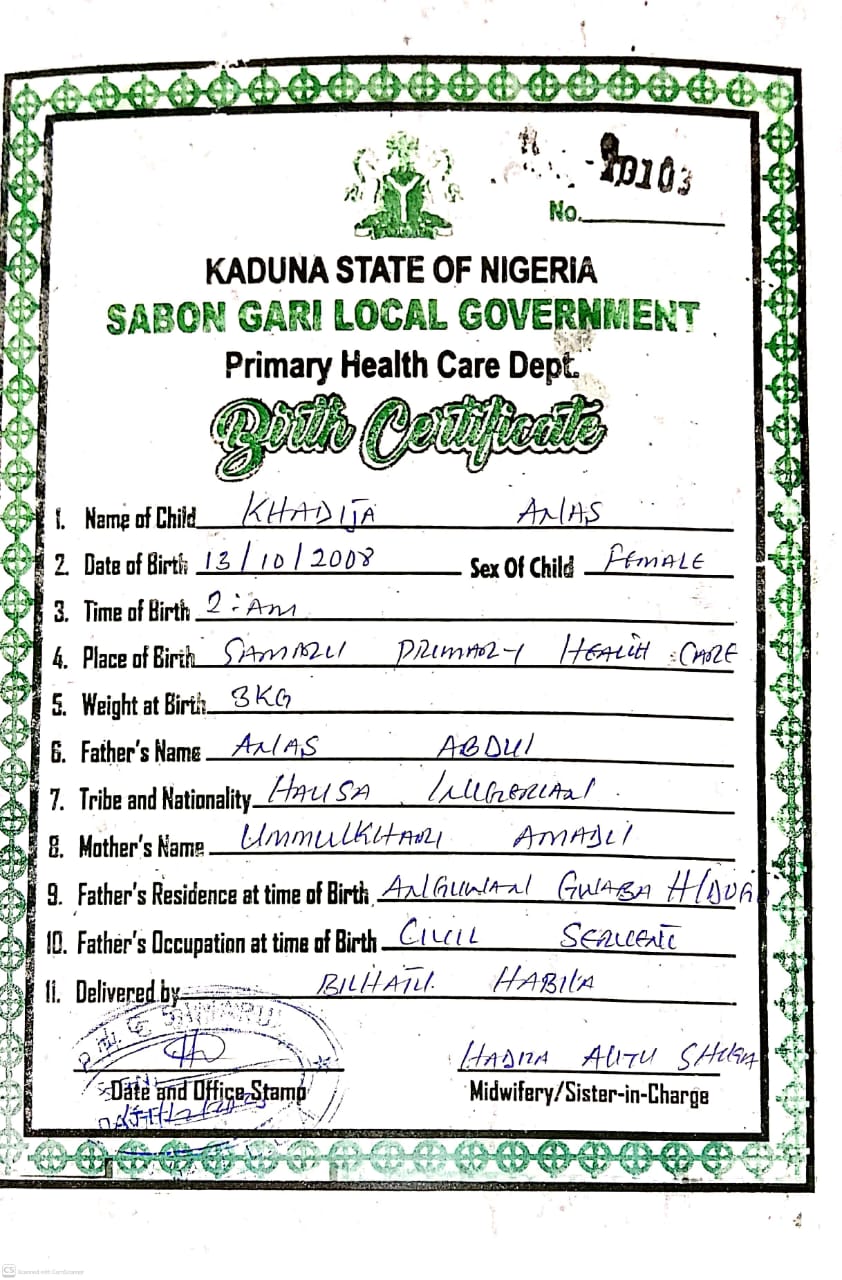 10103
No.
KADUNA STATE OF NIGERIA
SABON GARI LOCAL GOVERNMENT
Primary Health Care Dept.
Birth Certificate
1. Name of Child KHADIJA ANAS
2. Date of Birth 13/10/2008 Sex Of Child FEMALE
3. Time of Birth 2:AM
4. Place of Birth SAMARU PRIMARY HEALTH CARE
5. Weight at Birth 3KG
6. Father's Name ANAS ABDUL
7. Tribe and Nationality HAUSA / NIGERIAN
8. Mother's Name UMMULKHARI AMADU
9. Father's Residence at time of Birth ANGUWAN GWABA
10. Father's Occupation at time of Birth CIVIL SERVENT
11. Delivered by BILHATU HABILA
HADIZA ALIYU
Date and Office Stamp Midwifery/Sister-in-Charge
SAMARU
CS Scanned with CamScanner